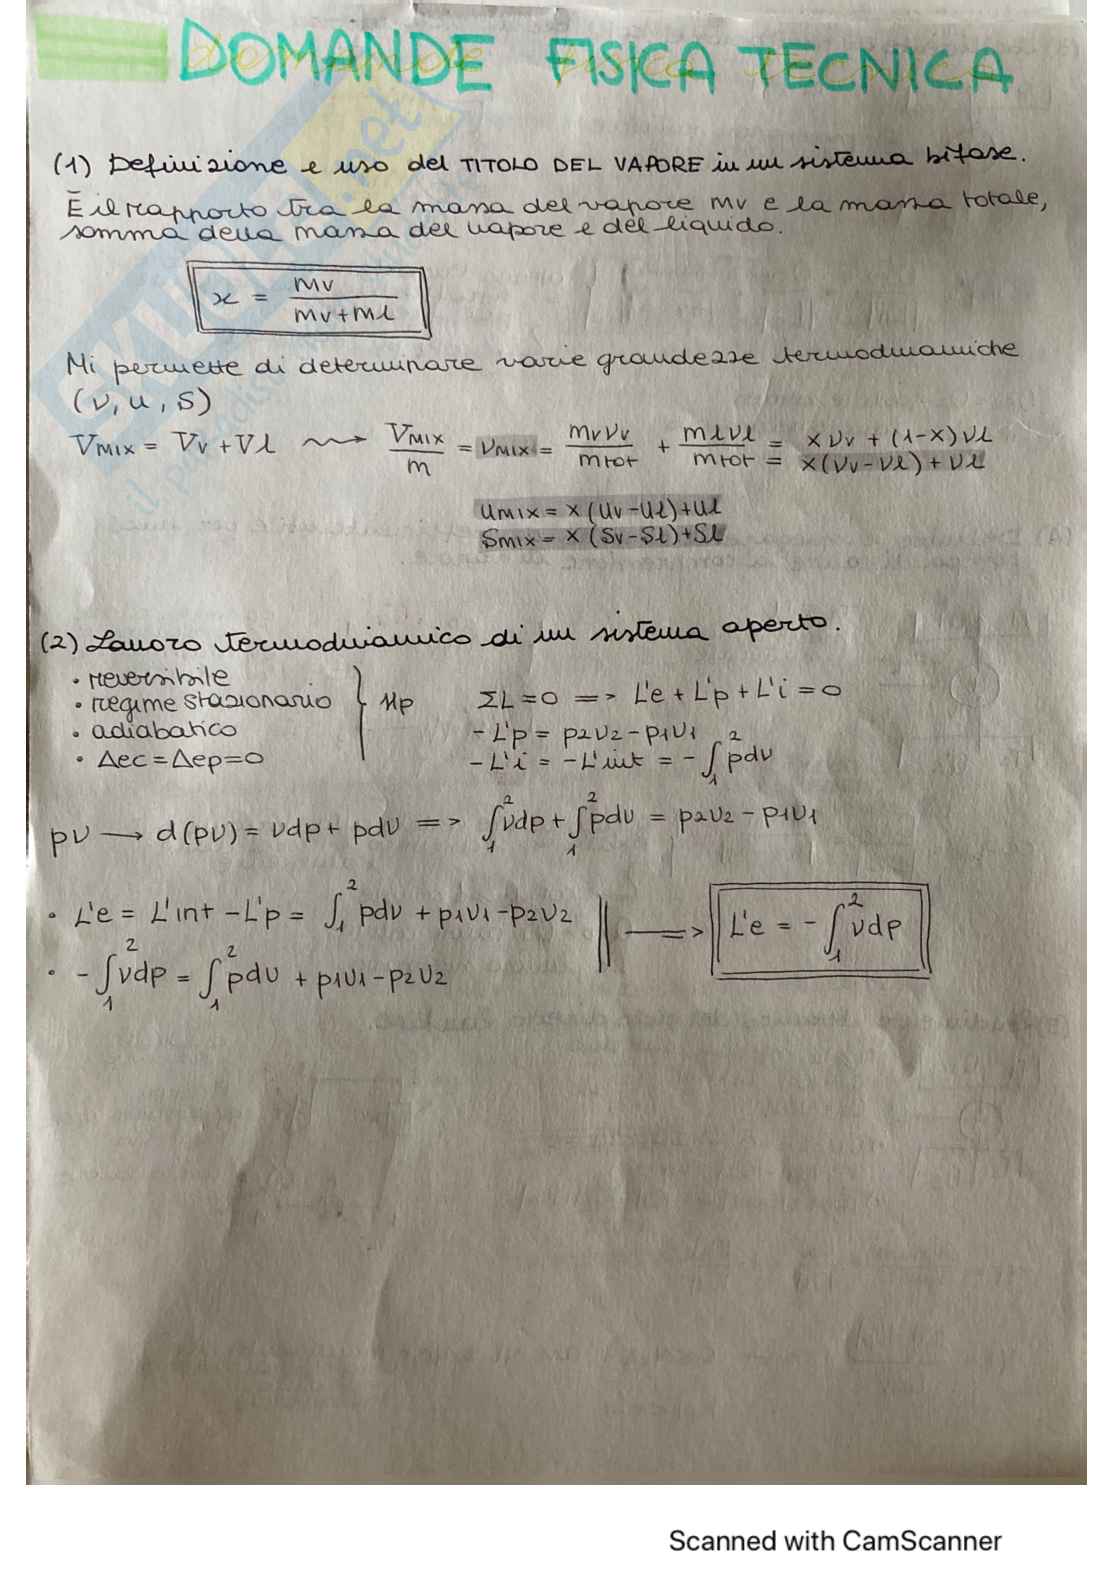 DOMANDE FISICA TECNICA
(1) Definizione e uso del TITOLO DEL VAPORE in un sistema bifase.
È il rapporto tra la massa del vapore mv e la massa totale,
somma della massa del vapore e del liquido.
x = mv / (mv+ml)
Mi permette di determinare varie grandezze termodinamiche
(v, u, s)
VMIX = Vv + Vl ⟿ VMIX/m = vMIX = mvvv/mtot + mlvl/mtot = x vv + (1-x)vl
= x(vv-vl)+vl
uMIX = x(uv-ul)+ul
sMIX = x(sv-sl)+sl
(2) Lavoro termodinamico di un sistema aperto.
• reversibile
• regime stazionario } Hp ΣL=0 => L'e + L'p + L'i = 0
• adiabatico - L'p = p2v2 - p1v1
• Δec = Δep = 0 - L'i = -L'int = -∫₁² pdv
pv → d(pv) = vdp + pdv => ∫₁² vdp + ∫₁² pdv = p2v2 - p1v1
• L'e = L'int - L'p = ∫₁² pdv + p1v1 - p2v2 || => L'e = -∫₁² vdp
• -∫₁² vdp = ∫₁² pdv + p1v1 - p2v2
Scanned with CamScanner